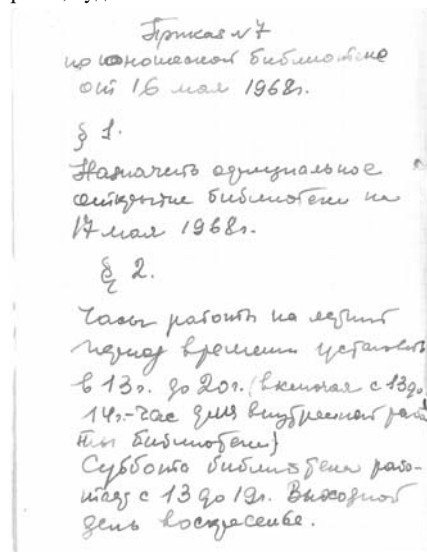 Приказ №7
по юношеской библиотеке
от 16 мая 1968г.
§ 1.
Назначить официальное
открытие библиотеки на
17 мая 1968г.
§ 2.
Часы работы на летний
период времени установить
в 13ч. до 20ч. (включая с 13 до
14ч.-час для внутренней рабо
ты библиотеки)
Суббота библиотека рабо-
тает с 13 до 19ч. Выходной
день воскресенье.